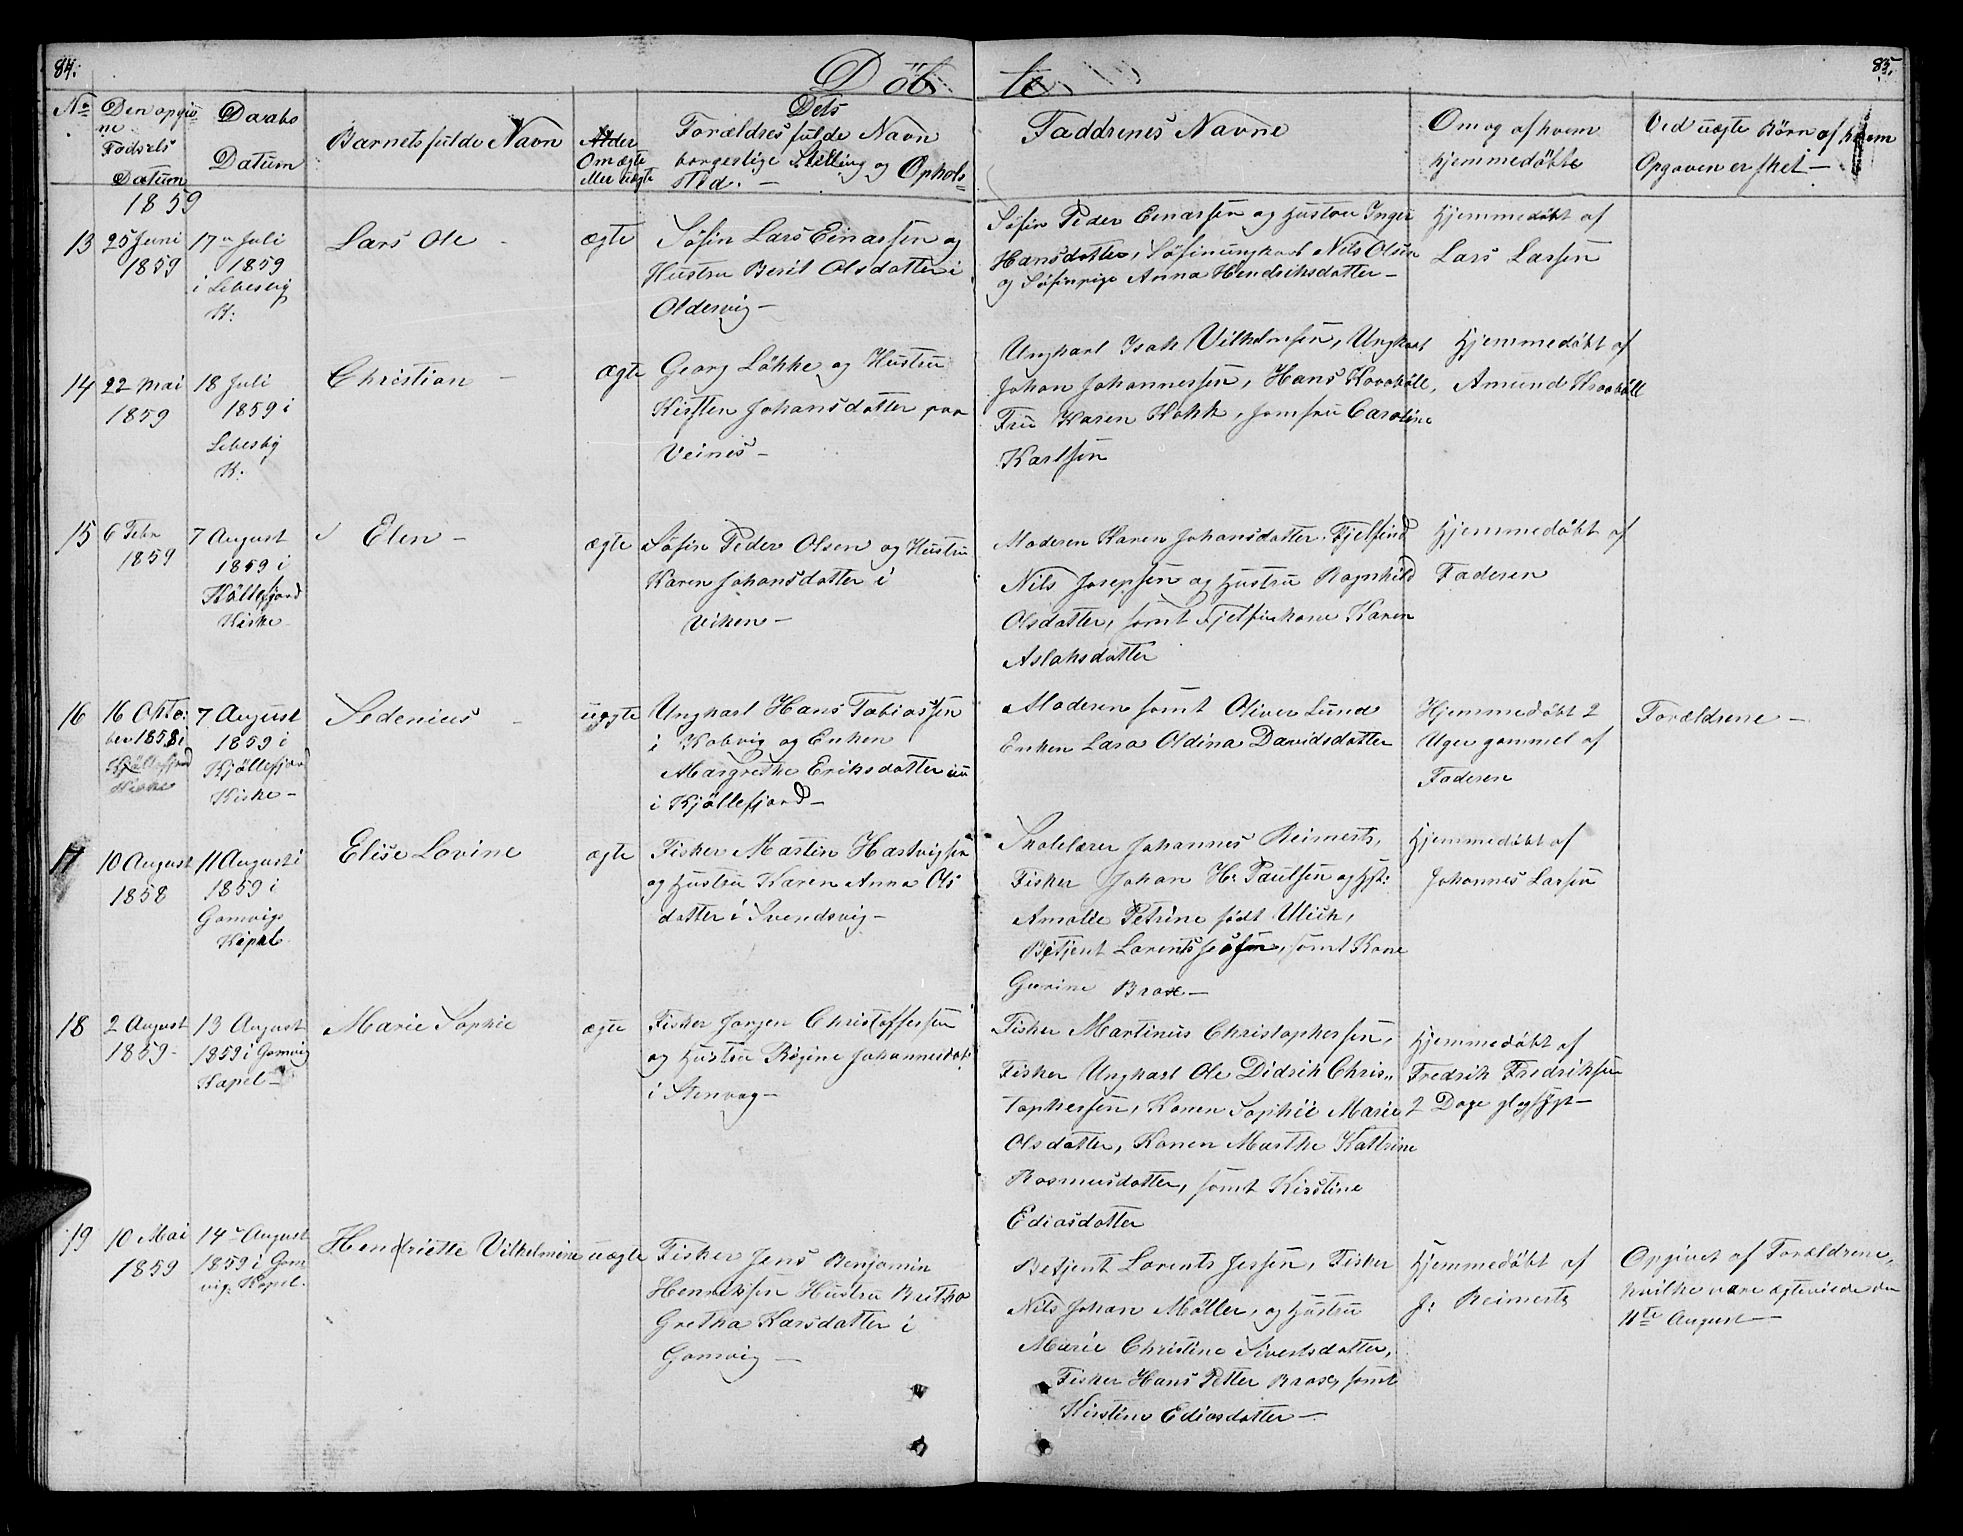 84.
Döb te
85.
No
Den opgivne Fødsels Datum
Daabs Datum
Barnets fulde Navn
Alder Om ægte eller uægte
Dets Forældres fulde Navn borgeslige Stilling og Opholssted. –
Faddrenes Navne
Om og af hvem hjemmedøbte
Ved uægte Børn af hvem Opgaven er sket –
1859
13
25 Juni
1859
17 Juli
1859
i Lebesby
K:
Lars Ole –
ægte
Søfin Lars Einarsen og
Hustru Berit Olsdatter i
Oldervig –
Søfin Peder Einarsen og Hustru Inger
Hansdatter, Søfinungkarl Nils Olsen
og Søfinpige Anna Hendriksdatter –
Hjemmedøbt af
Lars Larsen
14
22 Mai
1859
18 Juli
1859 i
Lebesby
K:
Christian –
ægte
Georg Løkke og Hustru
Kirsten Johansdatter paa
Veines –
Ungkarl Isak Vilhelmsen, Ungkarl
Johan Johannessen, Hans Kraabøll,
Fru Karen Kokk, Jomfru Caroline
Karlsen
Hjemmedøbt af
Amund Kraabøll
15
6 Febr
1859
7 August
1859 i
Kjöllefjord
Kirke
Elen –
ægte
Søfin Peder Olsen og Hustru
Karen Johansdatter i
Viken –
Moderen Karen Johansdatter, Fjelfind
Nils Josepsen og Hustru Ragnhild
Olsdatter, samt Fjelfinkone Karen
Aslaksdatter
Hjemmedøbt af
Faderen
16
16 Okto:
ber 1858 i
Kjöllefjord
Kirke
7 August
1859 i
Kjöllefjord
Kirke –
Sedenius –
uægte
Ungkarl Hans Tobiassen
i Kobvig og Enken
Margrethe Eriksdatter
i Kjöllefjord –
Moderen samt Oliver Lund
Enken Lara Oldina Davidsdatter
Hjemmedøbt 2
Uger gammel af
Faderen
Forældrene –
17
10 August
1858
11 August i
1859 i
Gamvigs
Kapel
Elise Lovine
ægte
Fisker Martin Hartvigsen
og Hustru Karen Anna Ols
datter i Svendsvig –
Skolelærer Johannes Reimerts,
Fisker Johan H. Paulsen og Hst:
Amalie Petrine født Ulich,
Betjent Lorents, samt Kone
Gurine Brox –
Hjemmedøbt af
Johannes Larsen
18
2 August
1859 –
13 August
1859 i Gamvig
Kapel –
Marie Sophie
ægte
Fisker Jørgen Christoffersen
og Hustru Regine Johannesdat:
i Stenvag –
Fisker Martinus Christophersen,
Fisker Ungkarl Ole Didrik Chris,,
tophersen, Konen Sophie Marie
Olsdatter, Konen Marthe Kattrine
Rasmusdatter, samt Kirstine
Ediasdatter
Hjemmedøbt af
Fredrik Fredriksen
2 Dage
19
10 Mai
1859
14 August
1859 i Gam
vig: Kapel.
Hendriette Vilhelmine
uægte
Fisker Jens Benjamin
Henriksen Hustru Britha
Gretha Larsdatter i
Gamvig –
Betjent Lorents Jessen, Fisker
Nils Johan Møller, og Hustru
Marie Christine Sivertsdatter,
Fisker Hans Petter Brox, samt
Kirstine Ediasdatter –
Hjemmedøbt af
J: Reimerts
Opgivet af Forældrene,
hvilke vare ægteviede den
11te August –